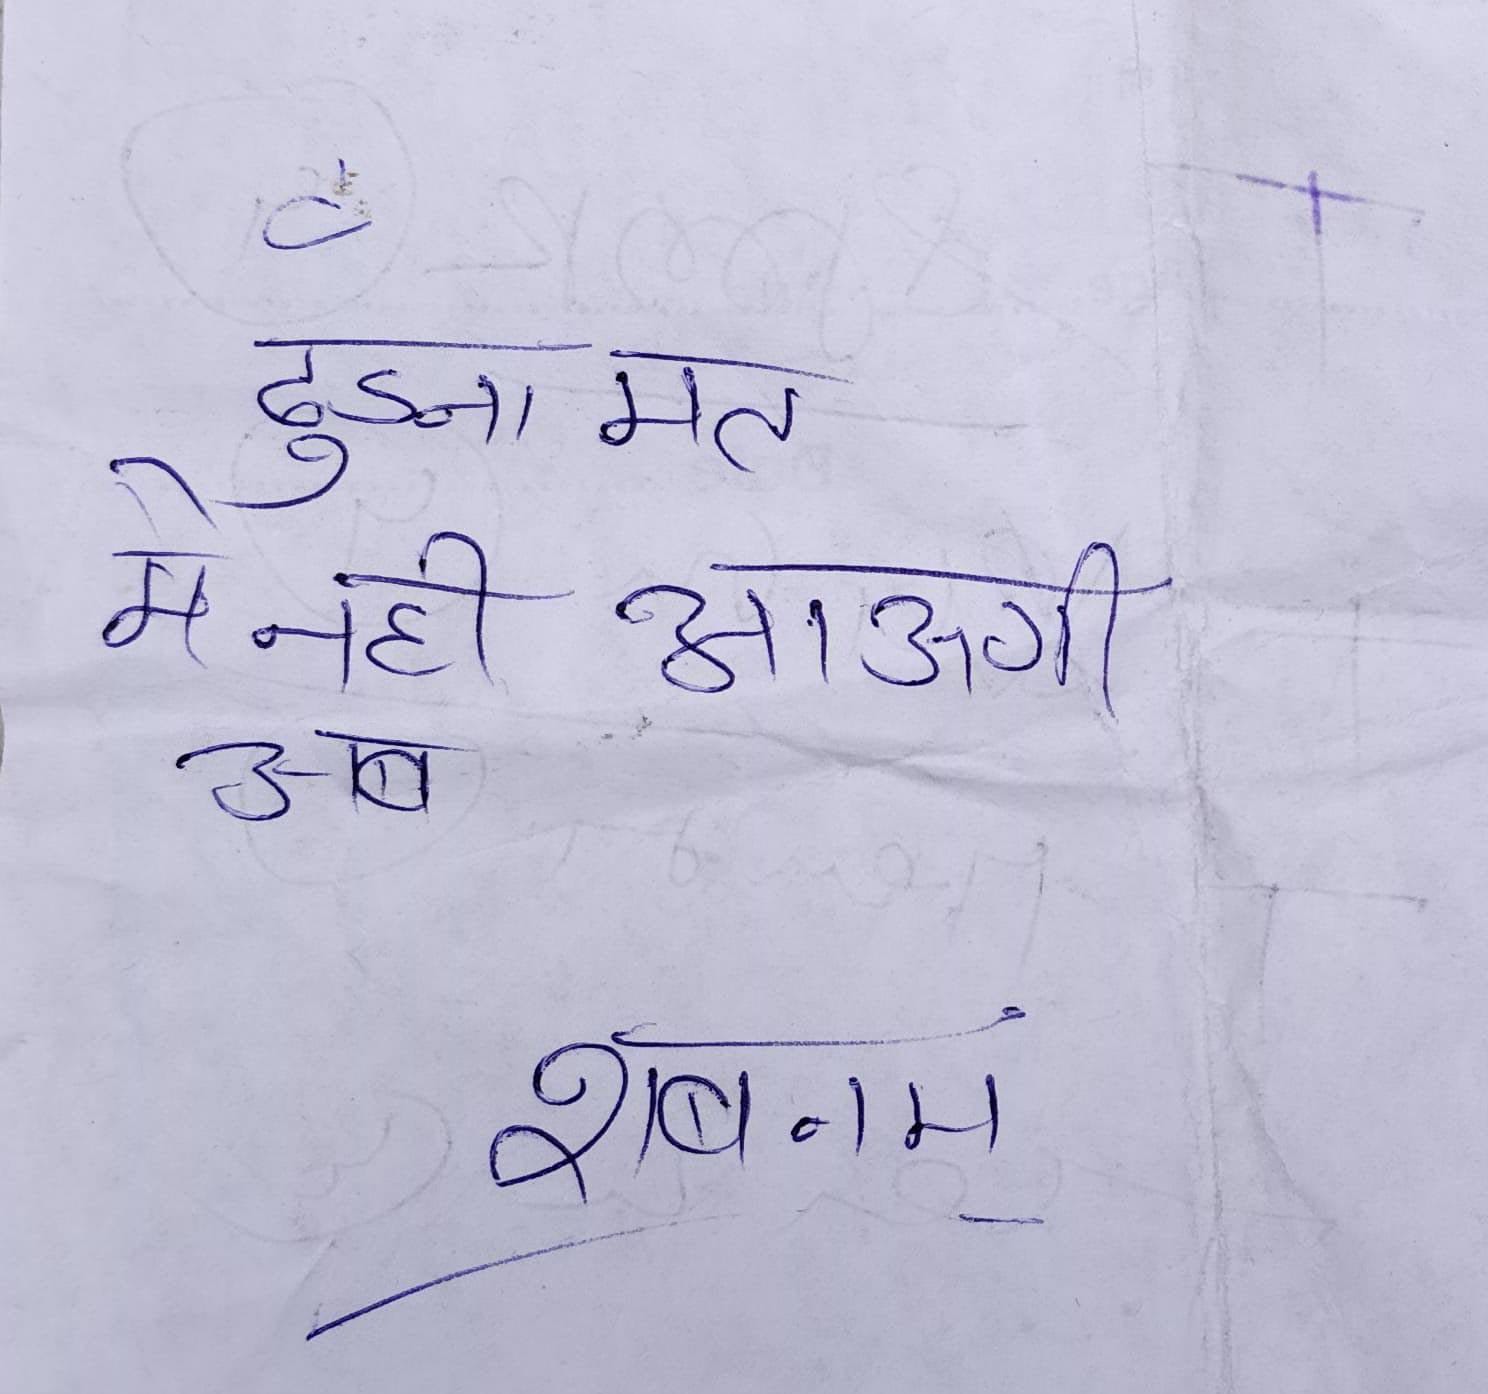 ढुडना मत
मै नही आऊगी
अब
शबनम